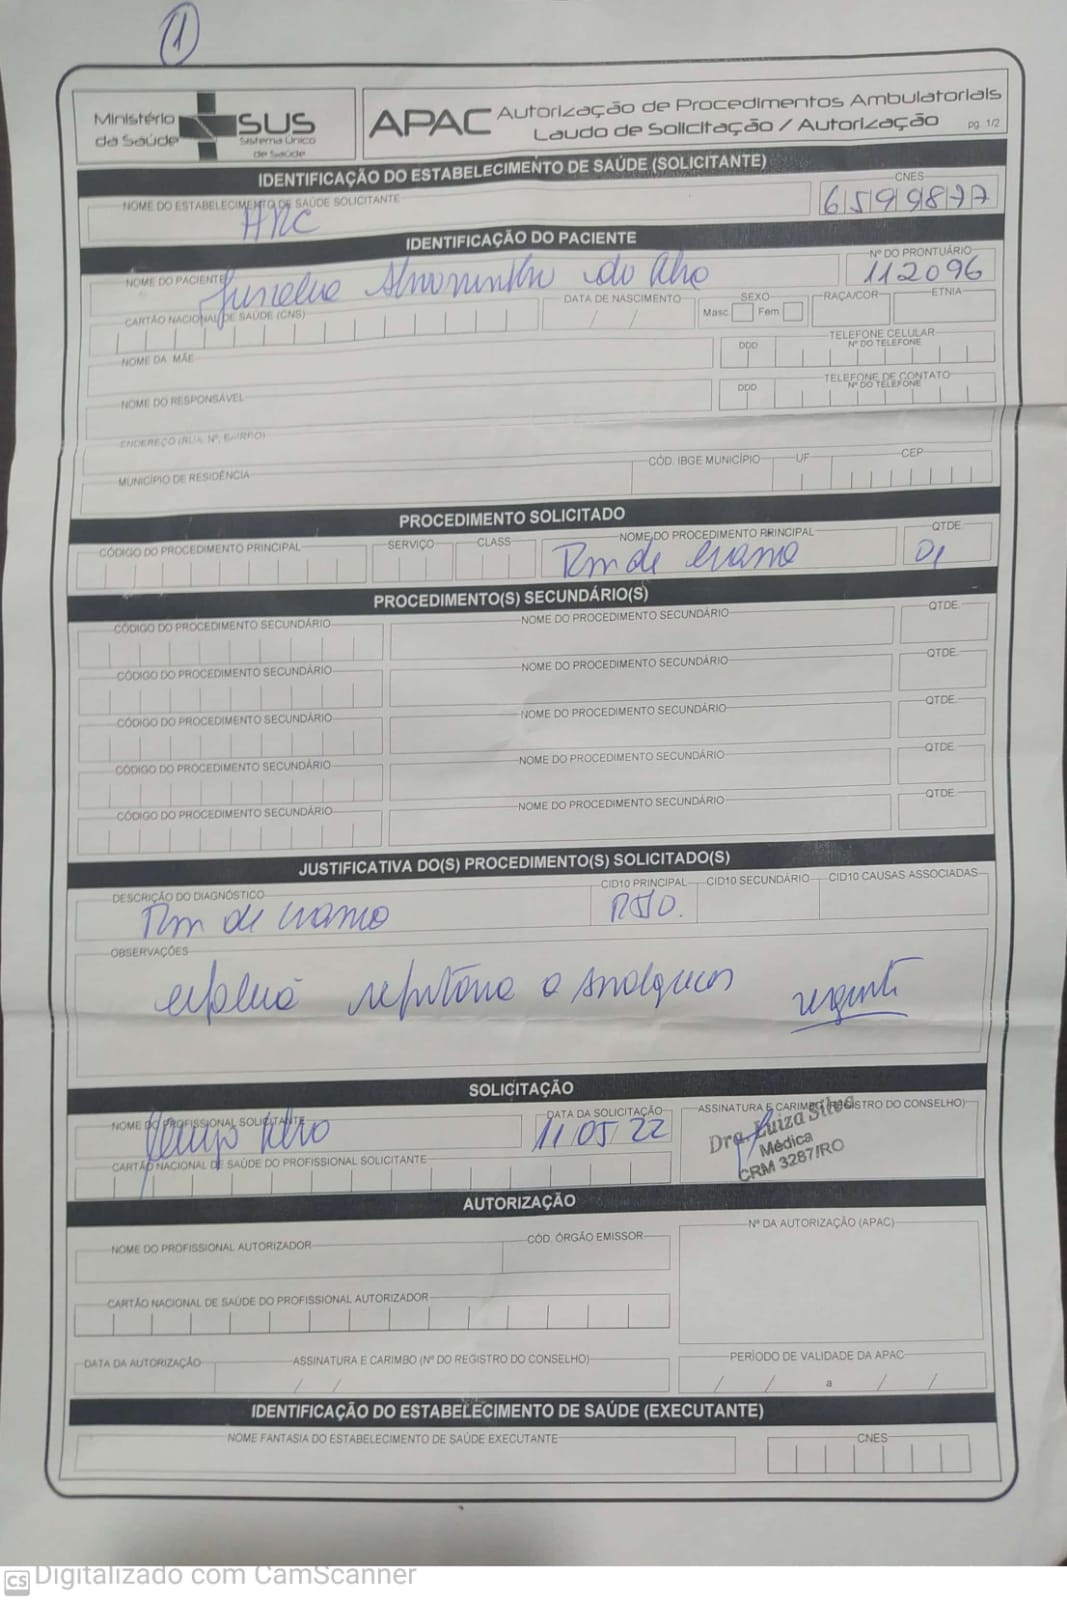 1
Ministério da Saúde
SUS
Sistema Único de Saúde
APAC Autorização de Procedimentos Ambulatoriais
Laudo de Solicitação / Autorização pg. 1/2
IDENTIFICAÇÃO DO ESTABELECIMENTO DE SAÚDE (SOLICITANTE)
NOME DO ESTABELECIMENTO DE SAÚDE SOLICITANTE CNES
HRC 6599877
IDENTIFICAÇÃO DO PACIENTE
NOME DO PACIENTE Nº DO PRONTUÁRIO
112096
CARTÃO NACIONAL DE SAÚDE (CNS) DATA DE NASCIMENTO SEXO RAÇA/COR ETNIA
/ / Masc Fem
NOME DA MÃE DDD TELEFONE CELULAR
Nº DO TELEFONE
NOME DO RESPONSÁVEL DDD TELEFONE DE CONTATO
Nº DO TELEFONE
ENDEREÇO (RUA, Nº, BAIRRO)
MUNICÍPIO DE RESIDÊNCIA CÓD. IBGE MUNICÍPIO UF CEP
PROCEDIMENTO SOLICITADO
CÓDIGO DO PROCEDIMENTO PRINCIPAL SERVIÇO CLASS NOME DO PROCEDIMENTO PRINCIPAL QTDE
Rm de 01
PROCEDIMENTO(S) SECUNDÁRIO(S)
CÓDIGO DO PROCEDIMENTO SECUNDÁRIO NOME DO PROCEDIMENTO SECUNDÁRIO QTDE
CÓDIGO DO PROCEDIMENTO SECUNDÁRIO NOME DO PROCEDIMENTO SECUNDÁRIO QTDE
CÓDIGO DO PROCEDIMENTO SECUNDÁRIO NOME DO PROCEDIMENTO SECUNDÁRIO QTDE
CÓDIGO DO PROCEDIMENTO SECUNDÁRIO NOME DO PROCEDIMENTO SECUNDÁRIO QTDE
CÓDIGO DO PROCEDIMENTO SECUNDÁRIO NOME DO PROCEDIMENTO SECUNDÁRIO QTDE
JUSTIFICATIVA DO(S) PROCEDIMENTO(S) SOLICITADO(S)
DESCRIÇÃO DO DIAGNÓSTICO CID10 PRINCIPAL CID10 SECUNDÁRIO CID10 CAUSAS ASSOCIADAS
Rm de
OBSERVAÇÕES
urgente
SOLICITAÇÃO
NOME DO PROFISSIONAL SOLICITANTE DATA DA SOLICITAÇÃO ASSINATURA E CARIMBO (REGISTRO DO CONSELHO)
11 05 22
Dra. Luiza Silva
Médica
CRM 3287/RO
CARTÃO NACIONAL DE SAÚDE DO PROFISSIONAL SOLICITANTE
AUTORIZAÇÃO
NOME DO PROFISSIONAL AUTORIZADOR CÓD. ÓRGÃO EMISSOR Nº DA AUTORIZAÇÃO (APAC)
CARTÃO NACIONAL DE SAÚDE DO PROFISSIONAL AUTORIZADOR
DATA DA AUTORIZAÇÃO ASSINATURA E CARIMBO (Nº DO REGISTRO DO CONSELHO) PERÍODO DE VALIDADE DA APAC
/ / / / a / /
IDENTIFICAÇÃO DO ESTABELECIMENTO DE SAÚDE (EXECUTANTE)
NOME FANTASIA DO ESTABELECIMENTO DE SAÚDE EXECUTANTE CNES
CS Digitalizado com CamScanner